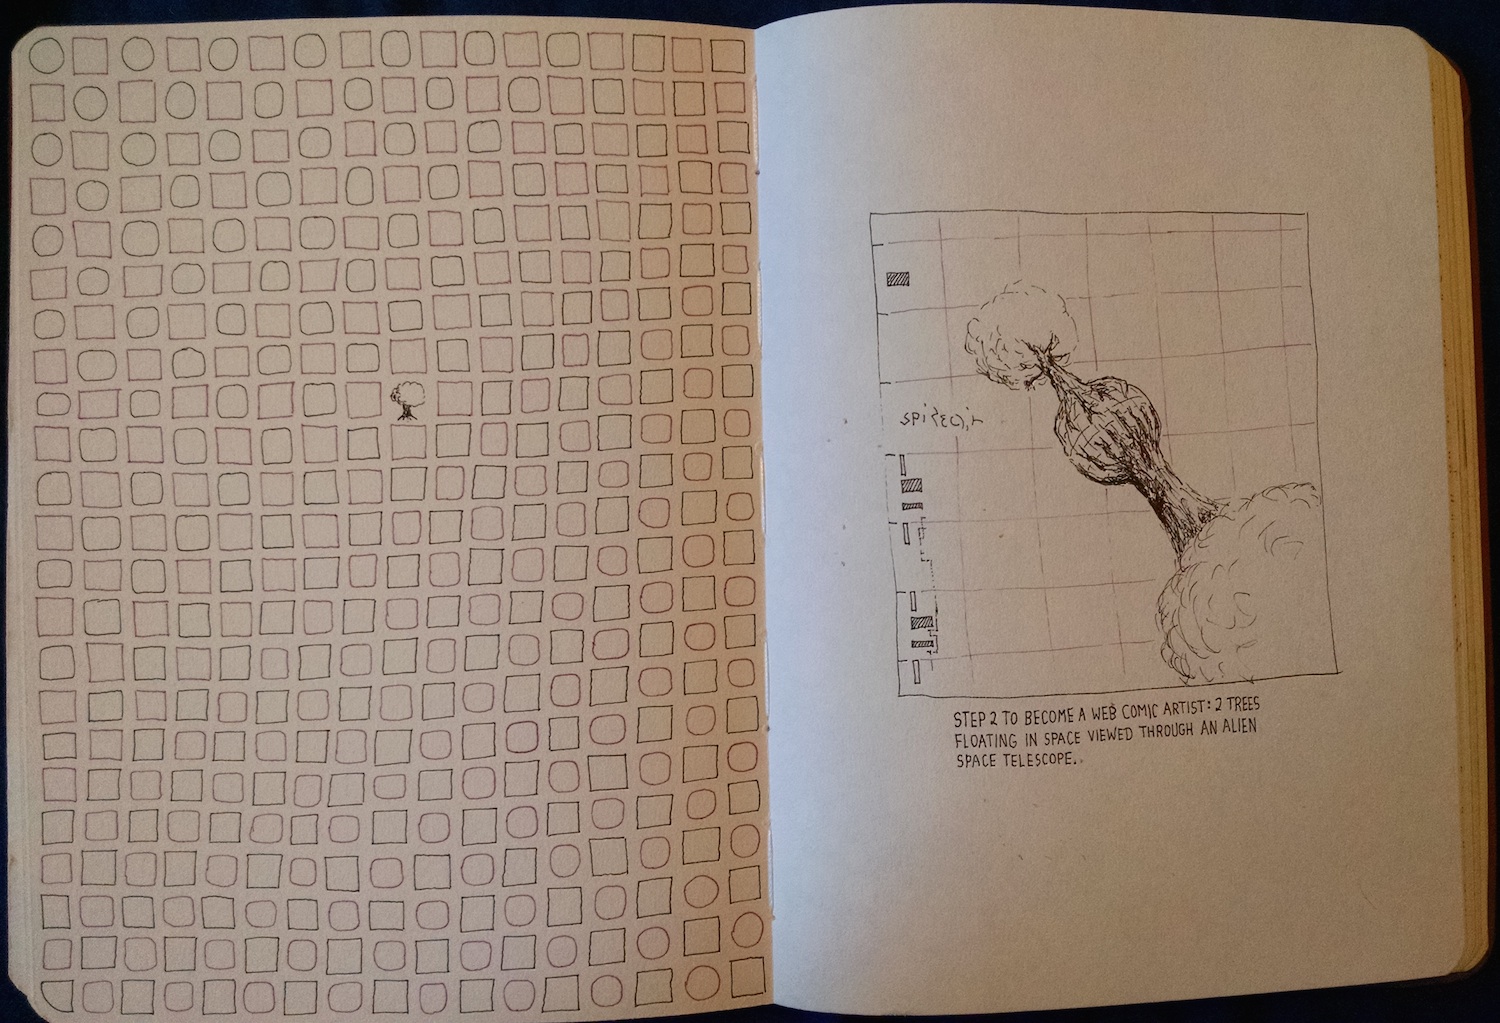 STEP 2 TO BECOME A WEB COMIC ARTIST: 2 TREES
FLOATING IN SPACE VIEWED THROUGH AN ALIEN
SPACE TELESCOPE.